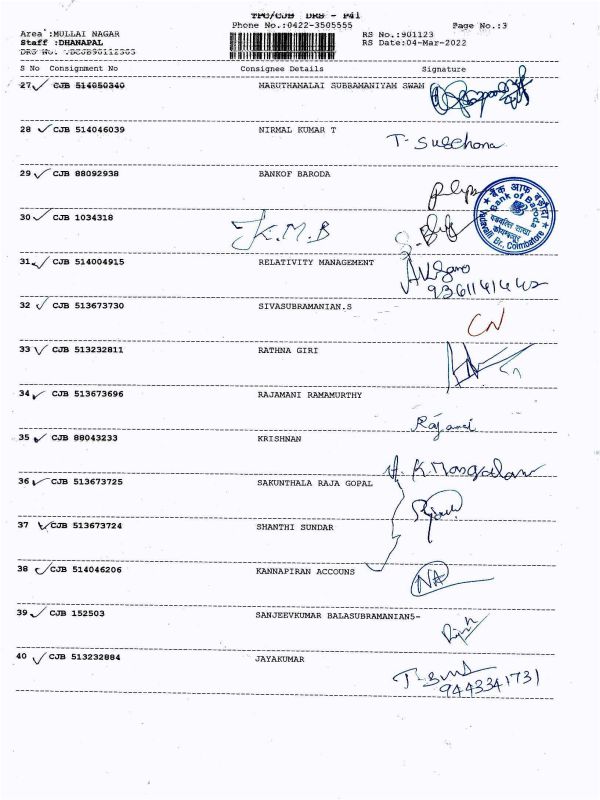 TPC/CJB DRS - P41
Area :MULLAI NAGAR Phone No.:0422-3505555 Page No.:3
RS No.:901123
Staff :DHANAPAL RS Date:04-Mar-2022
S No Consignment No Consignee Details Signature
27 CJB 514050340 MARUTHAMALAI SUBRAMANIYAM SWAM
28 CJB 514046039 NIRMAL KUMAR T
29 CJB 88092938 BANKOF BARODA
बैंक ऑफ बड़ौदा
Bank of Baroda
30 CJB 1034318 K.M.B
31 CJB 514004915 RELATIVITY MANAGEMENT
32 CJB 513673730 SIVASUBRAMANIAN.S
CN
33 CJB 513232811 RATHNA GIRI
34 CJB 513673696 RAJAMANI RAMAMURTHY
35 CJB 88043233 KRISHNAN
36 CJB 513673725 SAKUNTHALA RAJA GOPAL
37 CJB 513673724 SHANTHI SUNDAR
38 CJB 514046206 KANNAPIRAN ACCOUNS
NA
39 CJB 152503 SANJEEVKUMAR BALASUBRAMANIAN5-
40 CJB 513232884 JAYAKUMAR
9443341731